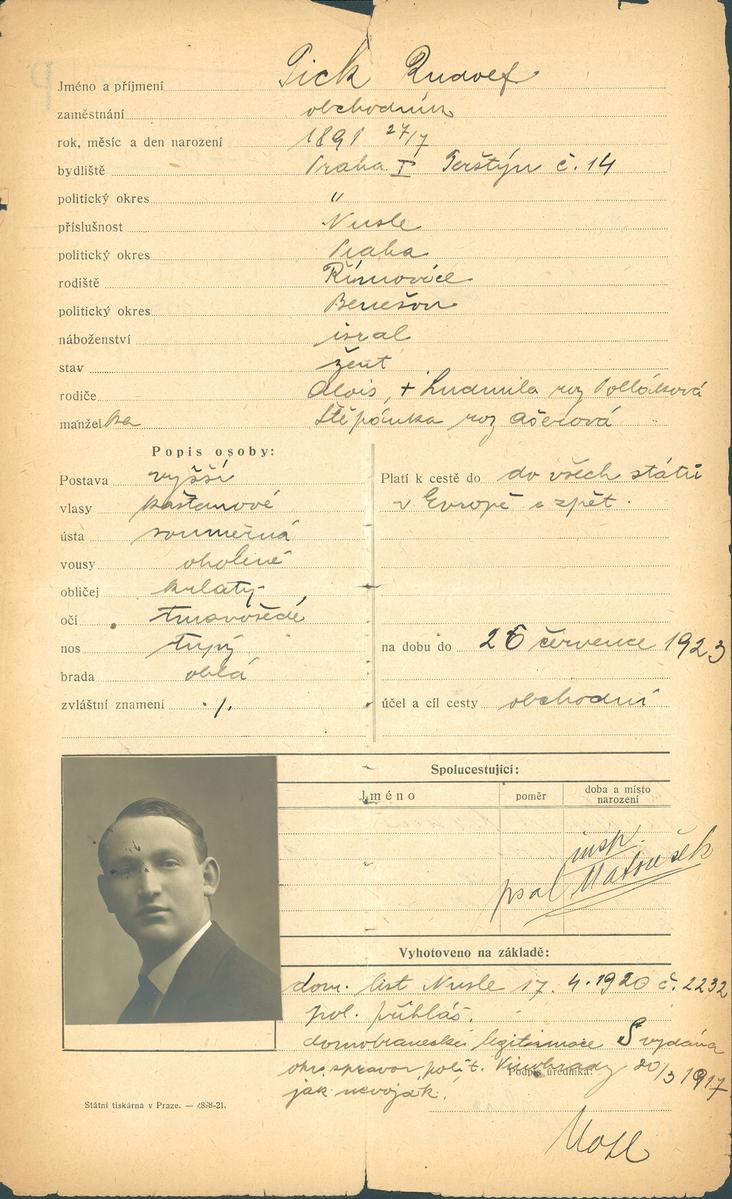 Jméno a příjmení Pick Rudolf
zaměstnání obchodník
rok, měsíc a den narození 1891 27/7
bydliště Praha I Perštýn č. 14
politický okres "
příslušnost Nusle
politický okres Praha
rodiště Římovice
politický okres Benešov
náboženství israel
stav žent
rodiče Alois, + Ludmila roz Polláková
manželka Štěpánka roz Ašerová
Popis osoby:
Postava vyšší
vlasy kaštanové
ústa souměrná
vousy oholené
obličej kulatý
očí tmavošedé
nos tupý
brada oblá
zvláštní znamení ./.
Platí k cestě do do všech států
v Evropě a zpět.
na dobu do 26 července 1923
účel a cíl cesty obchodní
Spolucestující:
Jméno poměr doba a místo narození
insp.
psal Matoušek
Vyhotoveno na základě:
dom. list Nusle 17. 4. 1920 č. 2232
pol. přihláš.
domobranecké legitimace S vydána
okr. správou polit. Vinohrady 20/3 1917
jak nevoják.
Podpis úředníka:
Státní tiskárna v Praze. —